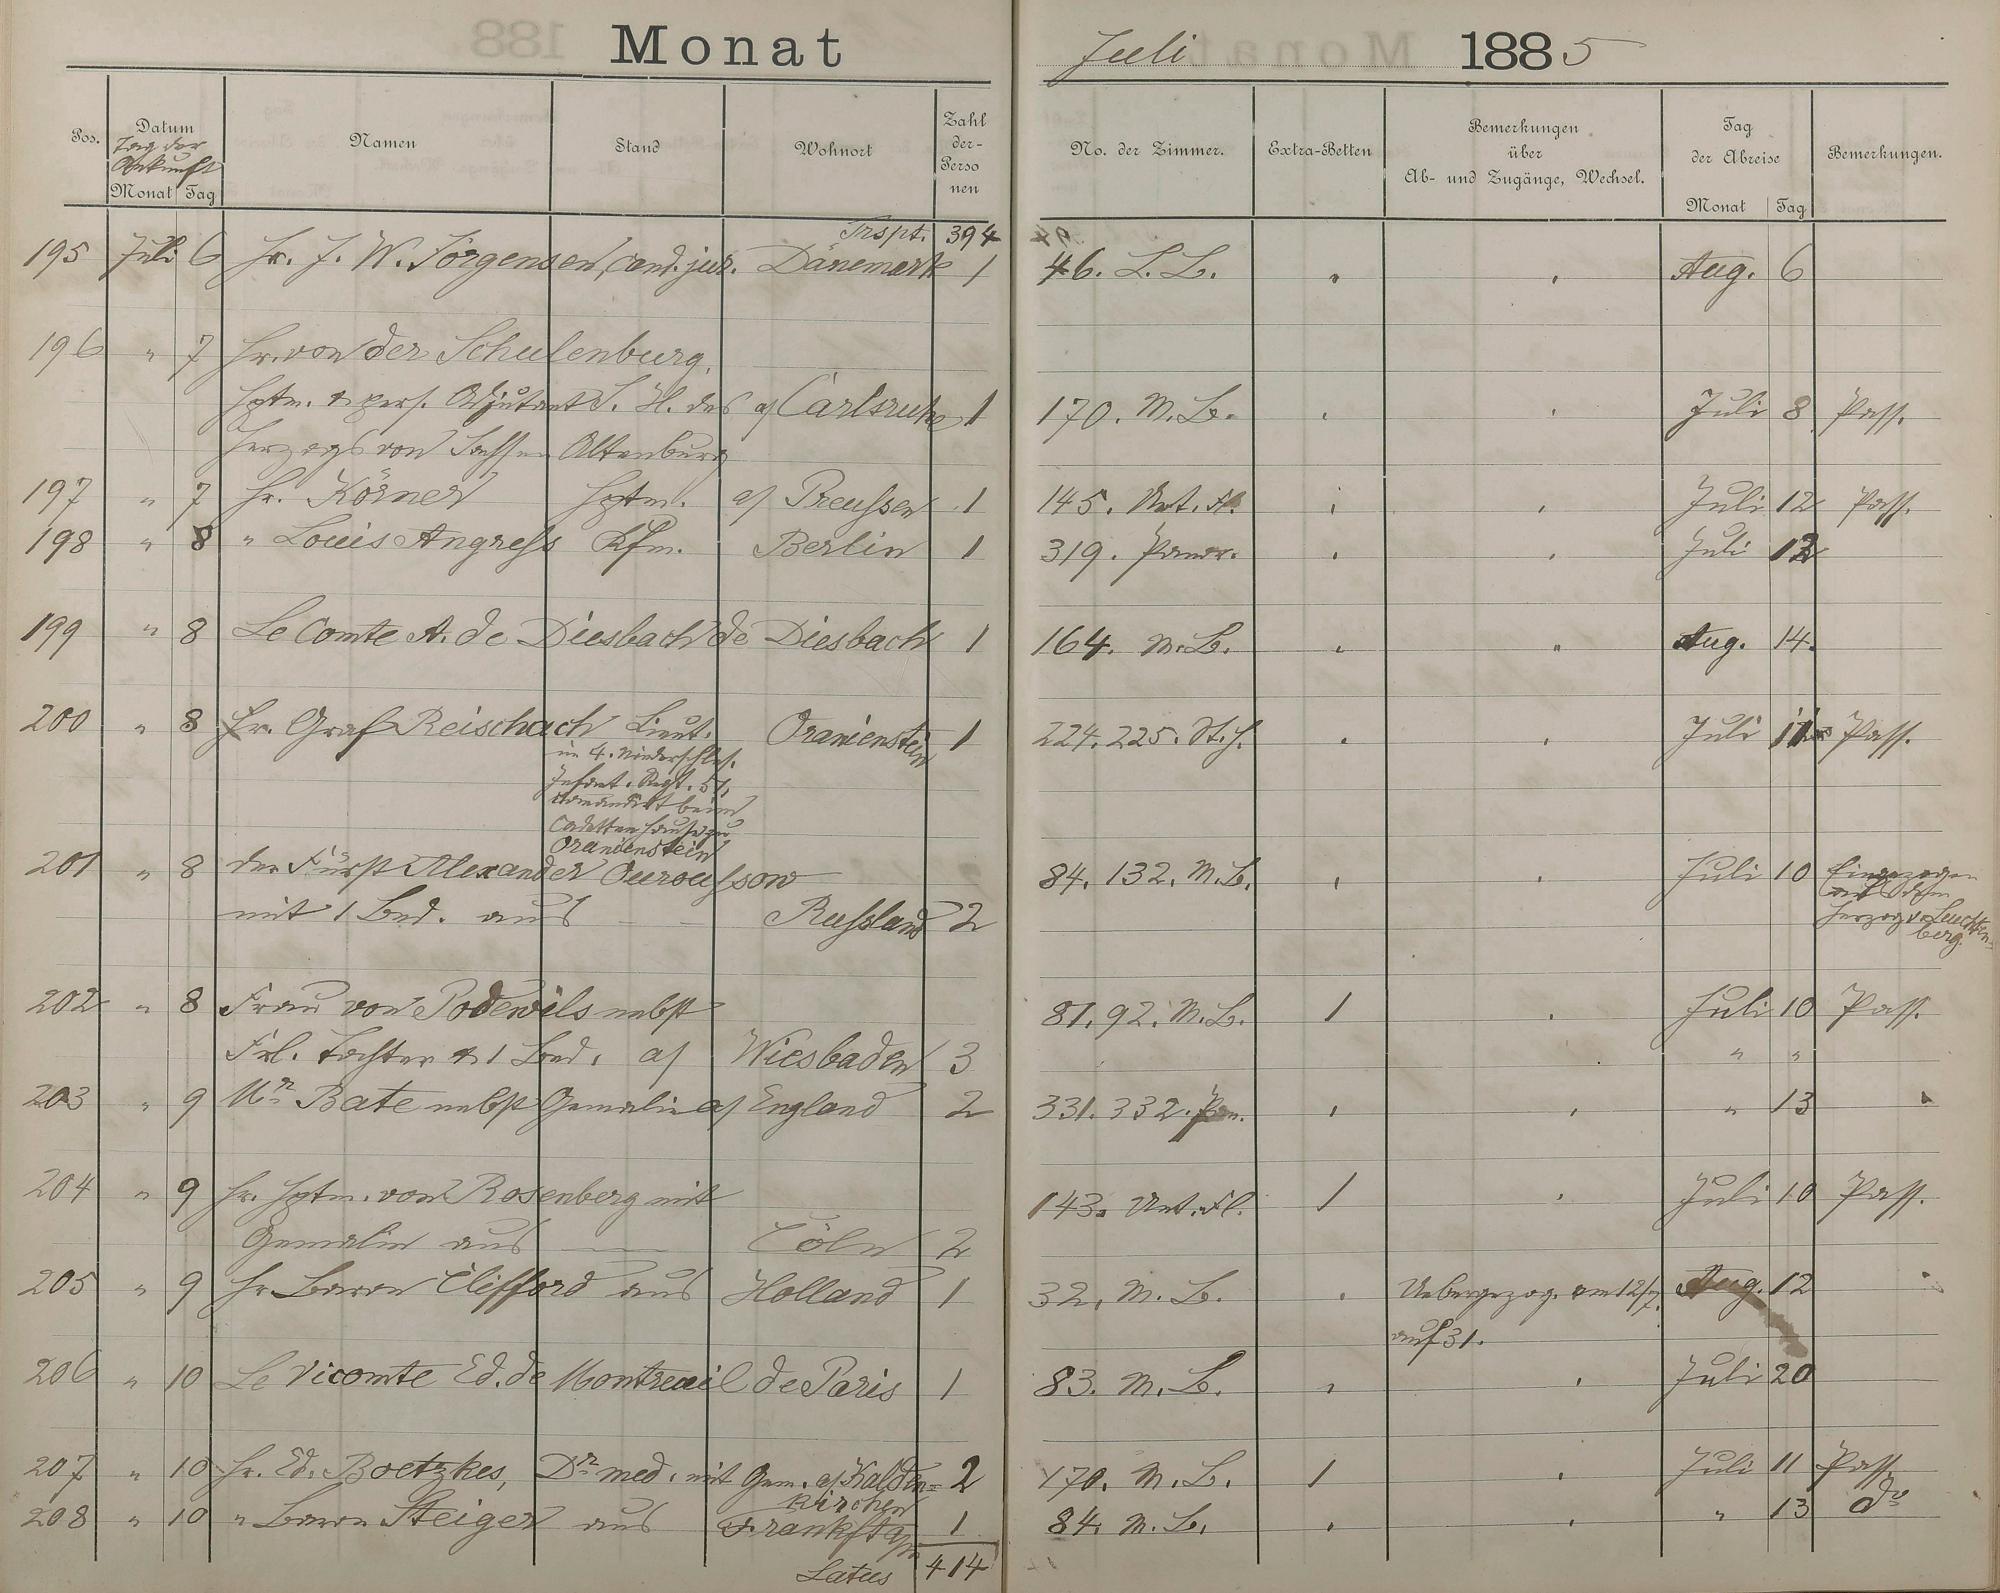 Monat Juli 1885
Pos. Datum Namen Stand Wohnort Zahl der Personen No. der Zimmer. Extra-Betten Bemerkungen über Ab- und Zugänge, Wechsel. Tag der Abreise Bemerkungen.
Tag der Ankunft
Monat Tag Monat Tag
Trspt. 394
195 Juli 6 Hr. J. W. Jörgensen, cand. jur. Dänemark 1 46. L. L. " " Aug. 6
196 " 7 Hr. von der Schulenburg,
Hptm. & pers. Adjutant S. H. des a/ Carlsruhe 1 170. M. B. " " Juli 8 Pass.
Herzogs von Sachsen Altenburg
197 " 7 Hr. Körner Hptm. a/ Preußen 1 145. Unt. Fl. " " Juli 12 Pass.
198 " 8 " Louis Angreß Kfm. Berlin 1 319. Panor. " " Juli 12
199 " 8 Le Comte A. de Diesbach de Diesbach 1 164. M. B. " " Aug. 14.
200 " 8 Hr. Graf Reischach Lieut. Oranienstein 1 224. 225. St. H. " " Juli 11 Pass.
im 4. Niederschles.
Infant. Regt. 51,
comandirt beim
Cadettenhause zu
Oranienstein
201 " 8 der Fürst Alexander Ouroussow 84. 132. M. B. " " Juli 10 Eingezogen
mit 1 Bed. aus — — Russland 2 mit dem
Herzog v. Leuchtenberg.
202 " 8 Frau von Podewils nebst 81. 92. M. B. 1 " Juli 10 Pass.
Frl. Tochter & 1 Bed. a/ Wiesbaden 3 " "
203 " 9 Mr. Bate nebst Gemalin a/ England 2 331. 332. Pan. " " " 13
204 " 9 Hr. Hptm. von Rosenberg mit 143. Unt. Fl. 1 " Juli 10 Pass.
Gemalin aus — Cöln 2
205 " 9 Hr. Baron Clifford aus Holland 1 32. M. B. " Uebergezog. am 12/7. Aug. 12
auf 31.
206 " 10 Le Vicomte Ed. de Montreuil de Paris 1 83. M. B. " " Juli 20
207 " 10 Hr. Ed. Boetzkes, Dr. med. mit Gem. a/ Kalden= 2 170. M. B. 1 " Juli 11 Pass.
kirchen
208 " 10 " Baron Steiger aus Frankft a/m 1 84. M. B. " " " 13 do
Latus 414